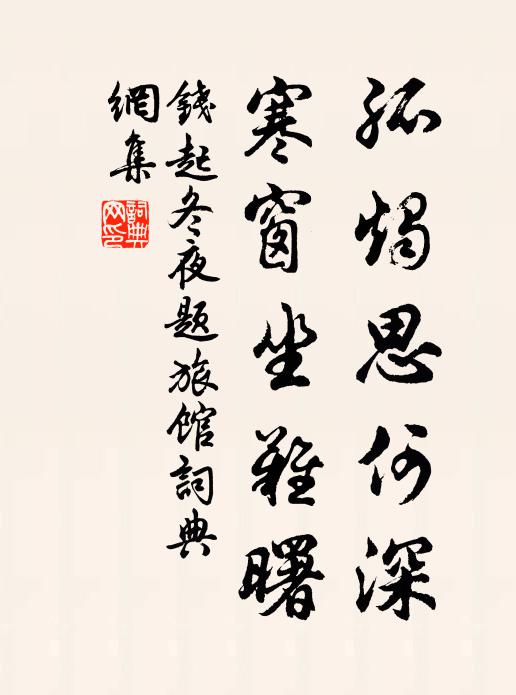 孤燭思何深
寒窗坐難曙
錢起冬夜題旅館詞典
網集
詞典
网印